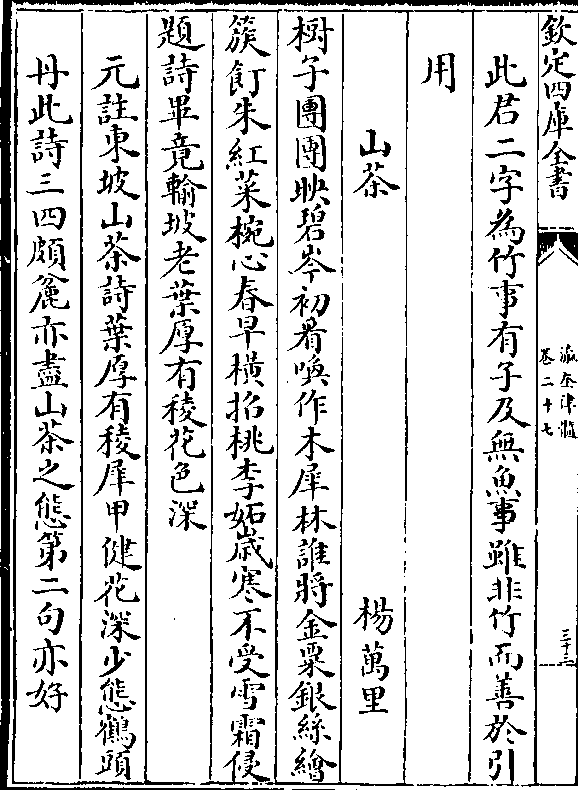 欽定四庫全書
瀛奎律髓
卷二十七
三十三
此君二字為竹事有子及無魚事雖非竹而善於引
用
山茶 楊萬里
樹子團團映碧岑初看喚作木犀林誰將金粟銀絲繪
簇飣朱紅菜椀心春早橫招桃李妬嵗寒不受雪霜侵
題詩畢竟輸坡老葉厚有稜花色深
元註東坡山茶詩葉厚有稜犀甲健花深少態鶴頭
丹此詩三四頗麄亦盡山茶之態第二句亦好